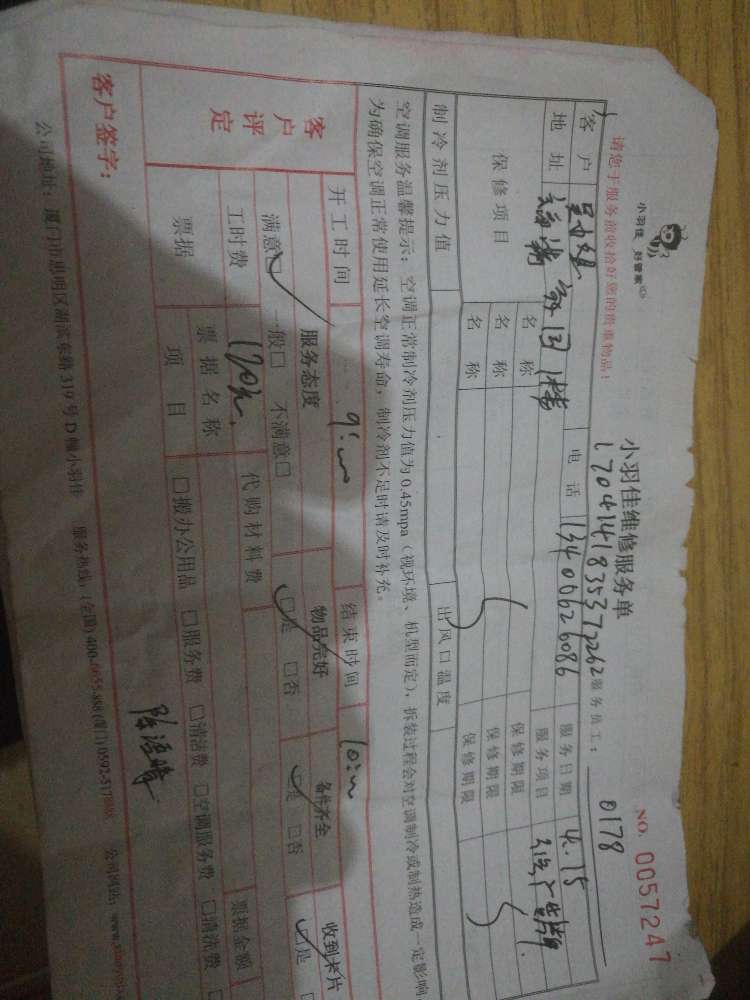 小羽佳 好管家
小羽佳维修服务单
NO. 0057247
请您于服务前收拾好您的贵重物品！
1704141835377262
服务员工：
0178
客户
电话
13400626086
服务日期
4.15
地址
服务项目
保修项目
名称
保修期限
名称
保修期限
名称
保修期限
制冷剂压力值
出风口温度
空调服务温馨提示：空调正常制冷剂压力值为0.45mpa（视环境、机型而定），拆装过程会对空调制冷或制热造成一定影响
为确保空调正常使用延长空调寿命，制冷剂不足时请及时补充。
开工时间
9:00
结束时间
10:00
客户评定
服务态度
物品完好
备件齐全
收到卡片
满意☑ 一般□ 不满意□
☑是 □否
☑是 □否
☑是
工时费
120元
代购材料费
票据
票据名称
票据金额
项目
□搬办公用品 □服务费 □清洁费 □空调服务费 □清洗费
客户签字：
公司地址：厦门市思明区湖滨东路319号D幢小羽佳 服务热线：(全国)400-6655-888(厦门)0592-517 公司网站：